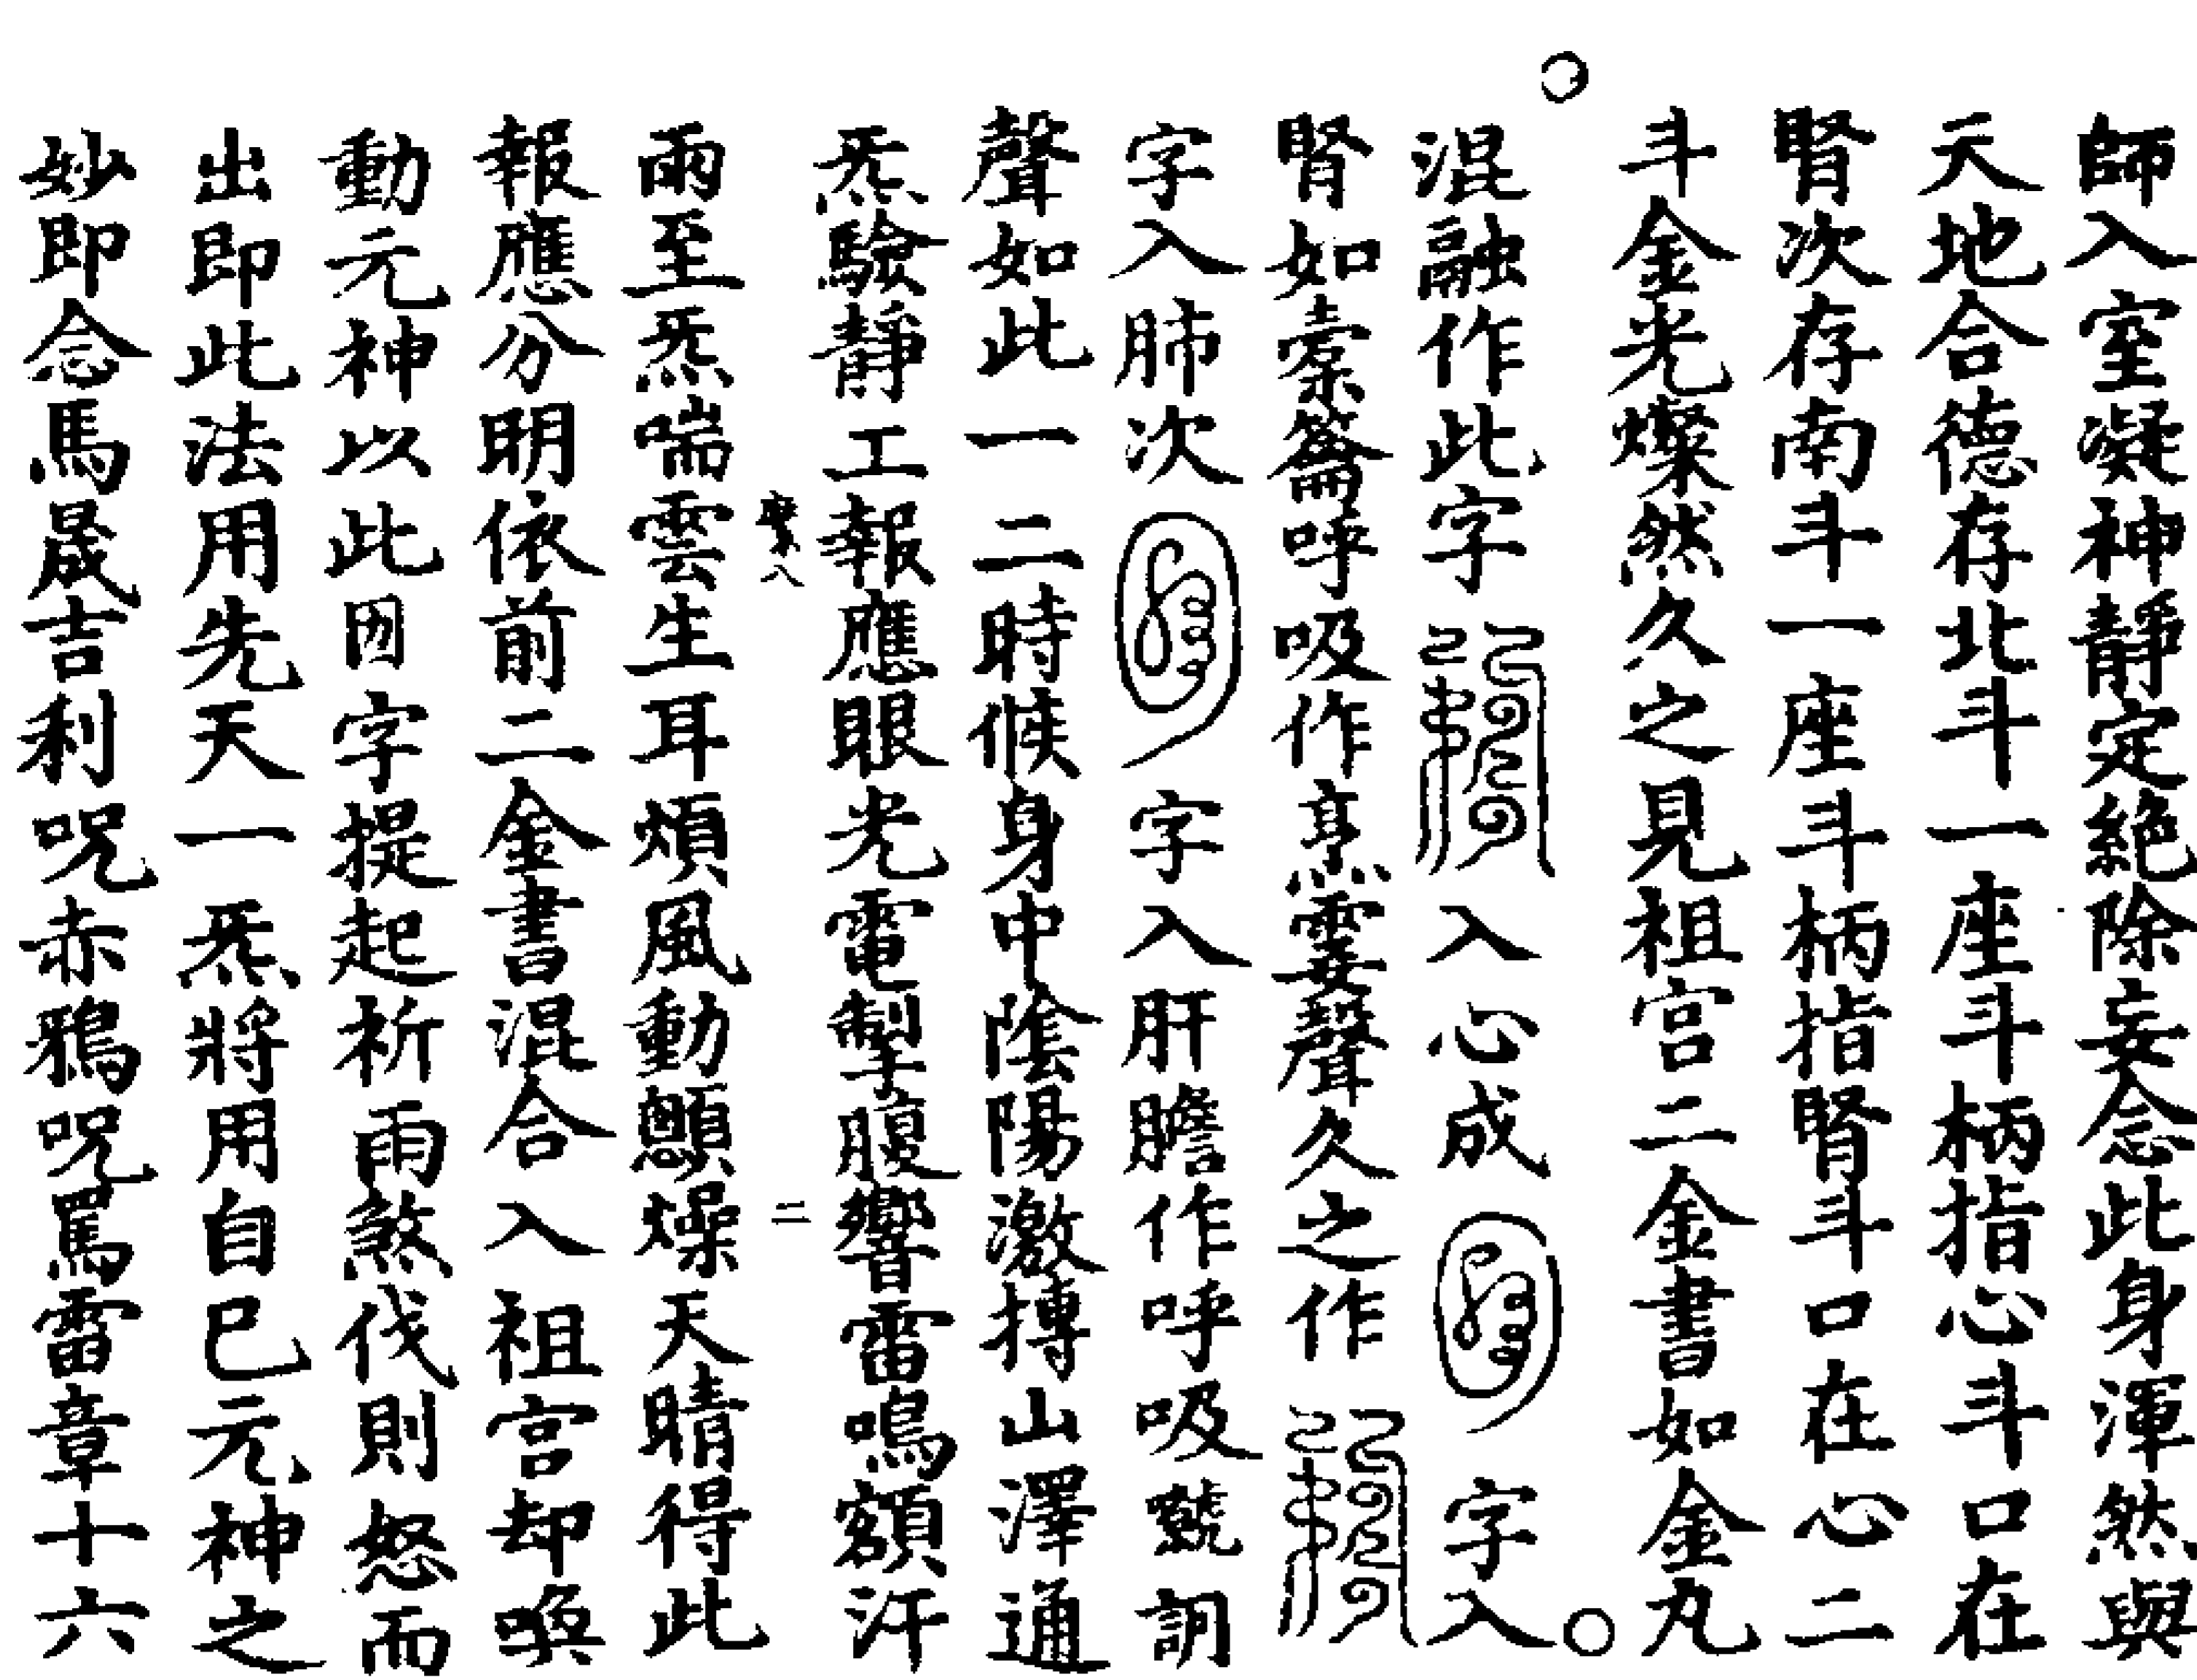 師入室凝神靜定絕除妄念此身渾然與
天地合德存北斗一座斗柄指心斗口在
腎次存南斗一座斗柄指腎斗口在心二
斗金光燦然久之見祖宮二金書如金丸
混融作此字入心成字入
腎如橐籥呼吸作烹霎聲久之作
字入肺次字入肝膽作呼吸
聲如此一二時候身中陰陽激摶山澤通
炁驗靜工報應眼光電掣腹響雷鳴額汗
八 二
雨至炁喘雲生耳煩風動顫燥天晴得此
報應分明依前二金書混合入祖宮却喚
動元神以此字提起祈雨煞伐則怒而
出即此法用先天一炁將用自己元神之
妙即念馬晟吉利呪赤鴉呪罵雷章十六